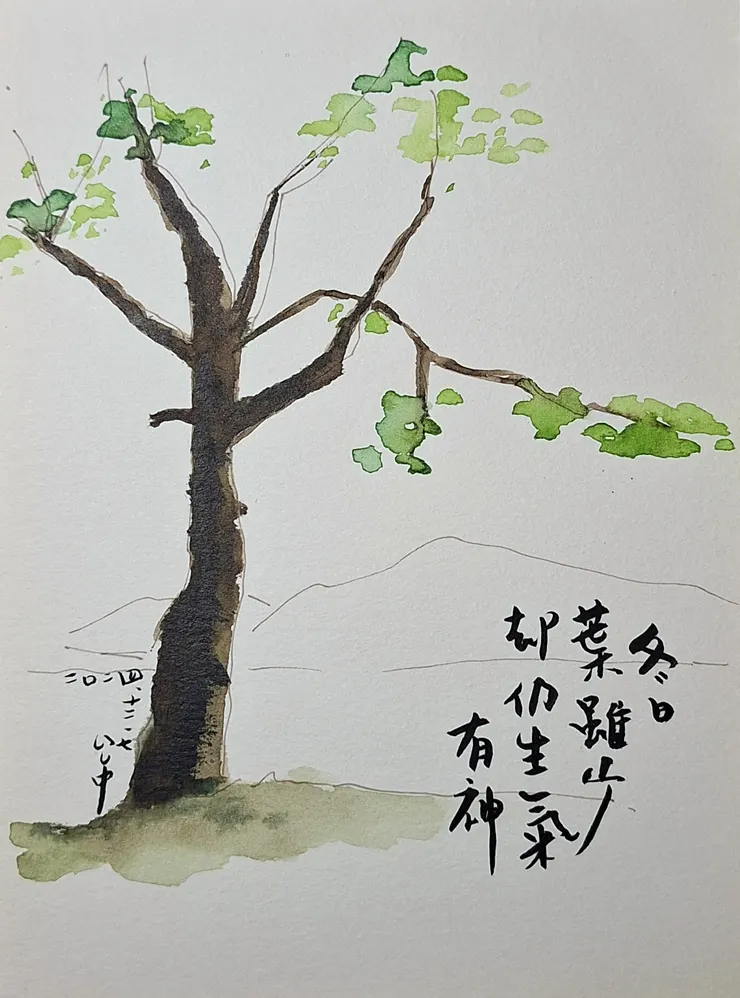 冬日
葉雖少
却仍生氣
有神
二〇二四、十二、七